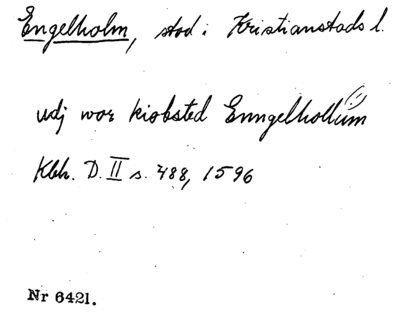 Engelholm, stad i Kristianstads l.
udj wor kiøbsted Enngelhollum (!)
Kbh. D. II s. 488, 1596
Nr 6421.